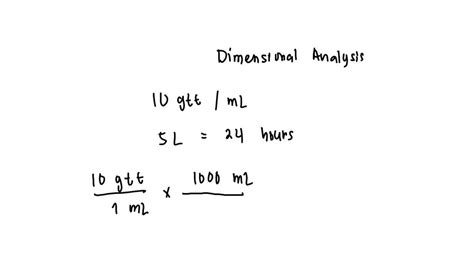 Dimensional Analysis
10 gtt / mL
5 L = 24 hours
10 gtt × 1000 mL
1 mL